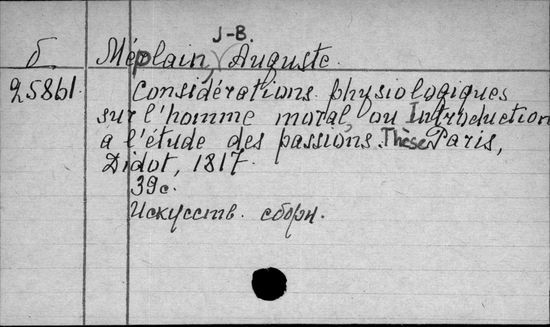 J-B.
б Méplain, Auguste.
25861. Considérations physiologiques
sur l'homme moral, ou Introduction
a l'étude des passions. Thèse Paris,
Didot, 1817.
39 с.
Искусств. сборн.